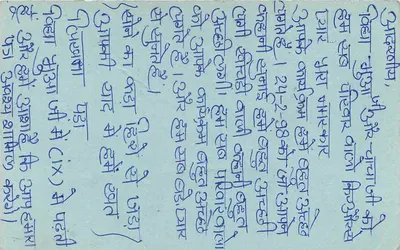 आदरणीय,
बुआ जी और चाचा जी को
हम परिवार वालों कि ओर से
प्यार भरा नमस्कार
आपके कार्यक्रम हमें बहुत अच्छे
लगते हैं। 24-2-98 को जो आपने
कहानी सुनाई हमें बहुत अच्छी
लगी वाली कहानी बहुत
अच्छी लगी। हम सब परिवार वालों
को आपका कार्यक्रम बहुत अच्छा
लगता है। और हम सब बड़े प्यार
से सुनते हैं।
आपकी याद में हमने खत
लिखना पड़ा
बुआ जी मैं (ix) में पढ़ती
हूँ और हमें आशा है कि आप हमारा
पत्र अवश्य शामिल करेंगे।